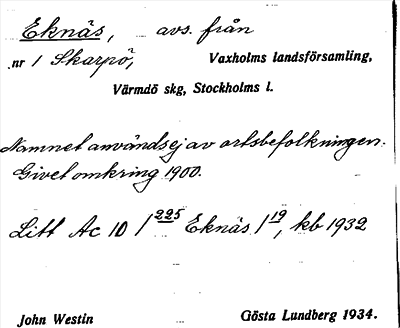 Eknäs, avs. från
nr 1 Skarpö, Vaxholms landsförsamling,
Värmdö skg, Stockholms l.
Namnet användes ej av ortsbefolkningen.
Givet omkring 1900.
Litt Ac 10 / 225 Eknäs 1 19, kb 1932
John Westin Gösta Lundberg 1934.